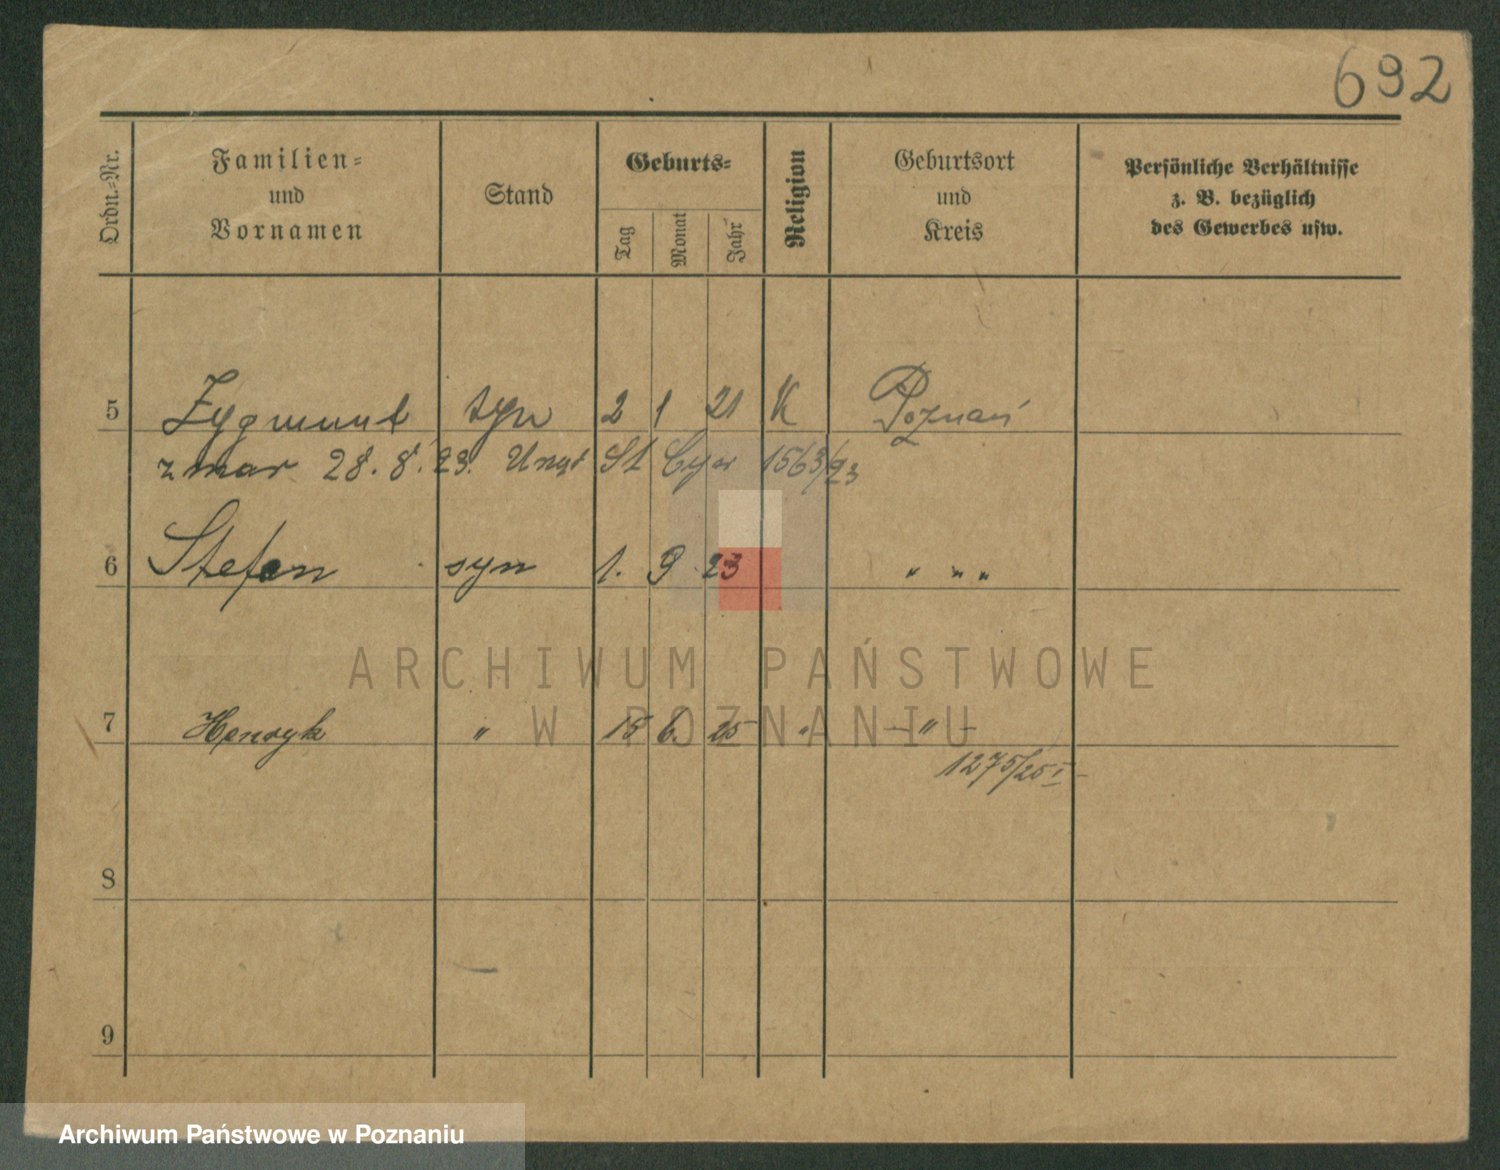 692
Ordn.-Nr.
Familien-
und
Vornamen
Stand
Geburts-
Tag
Monat
Jahr
Religion
Geburtsort
und
Kreis
Persönliche Verhältnisse
z. B. bezüglich
des Gewerbes usw.
5 Zygmunt syn 2 1 21 K Poznań
zmar 28.8.23. Urząd St Cyw 1563/23
6 Stefan syn 1. 9 23 " " "
ARCHIWUM PAŃSTWOWE
W POZNANIU
7 Henryk " 15 6. 25 " -"-
1275/25 I-
8
9
Archiwum Państwowe w Poznaniu